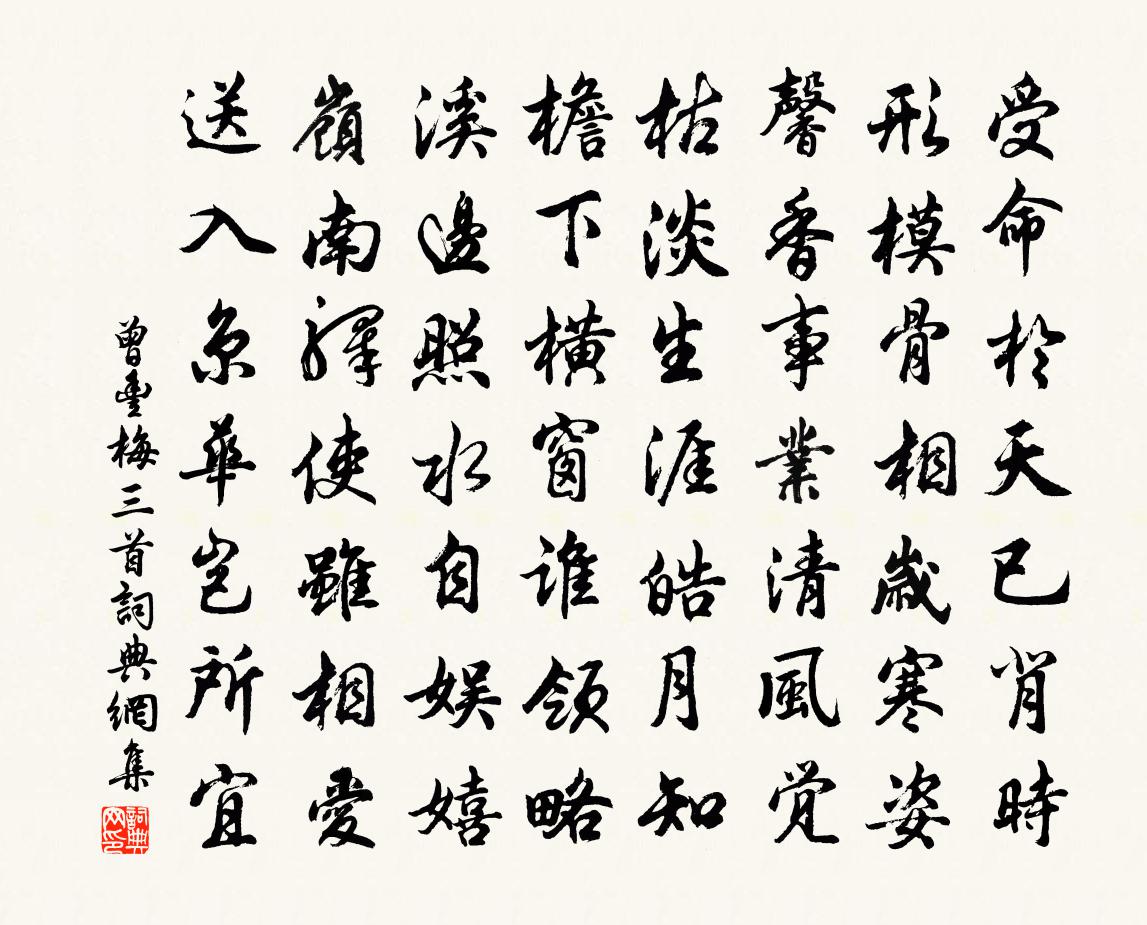 受命於天已肖時
形模骨相歲寒姿
馨香事業清風覺
枯淡生涯皓月知
檐下橫窗誰領略
溪邊照水自娛嬉
嶺南驛使雖相愛
送入京華豈所宜
曾豐梅三首詞典網集
詞典網印